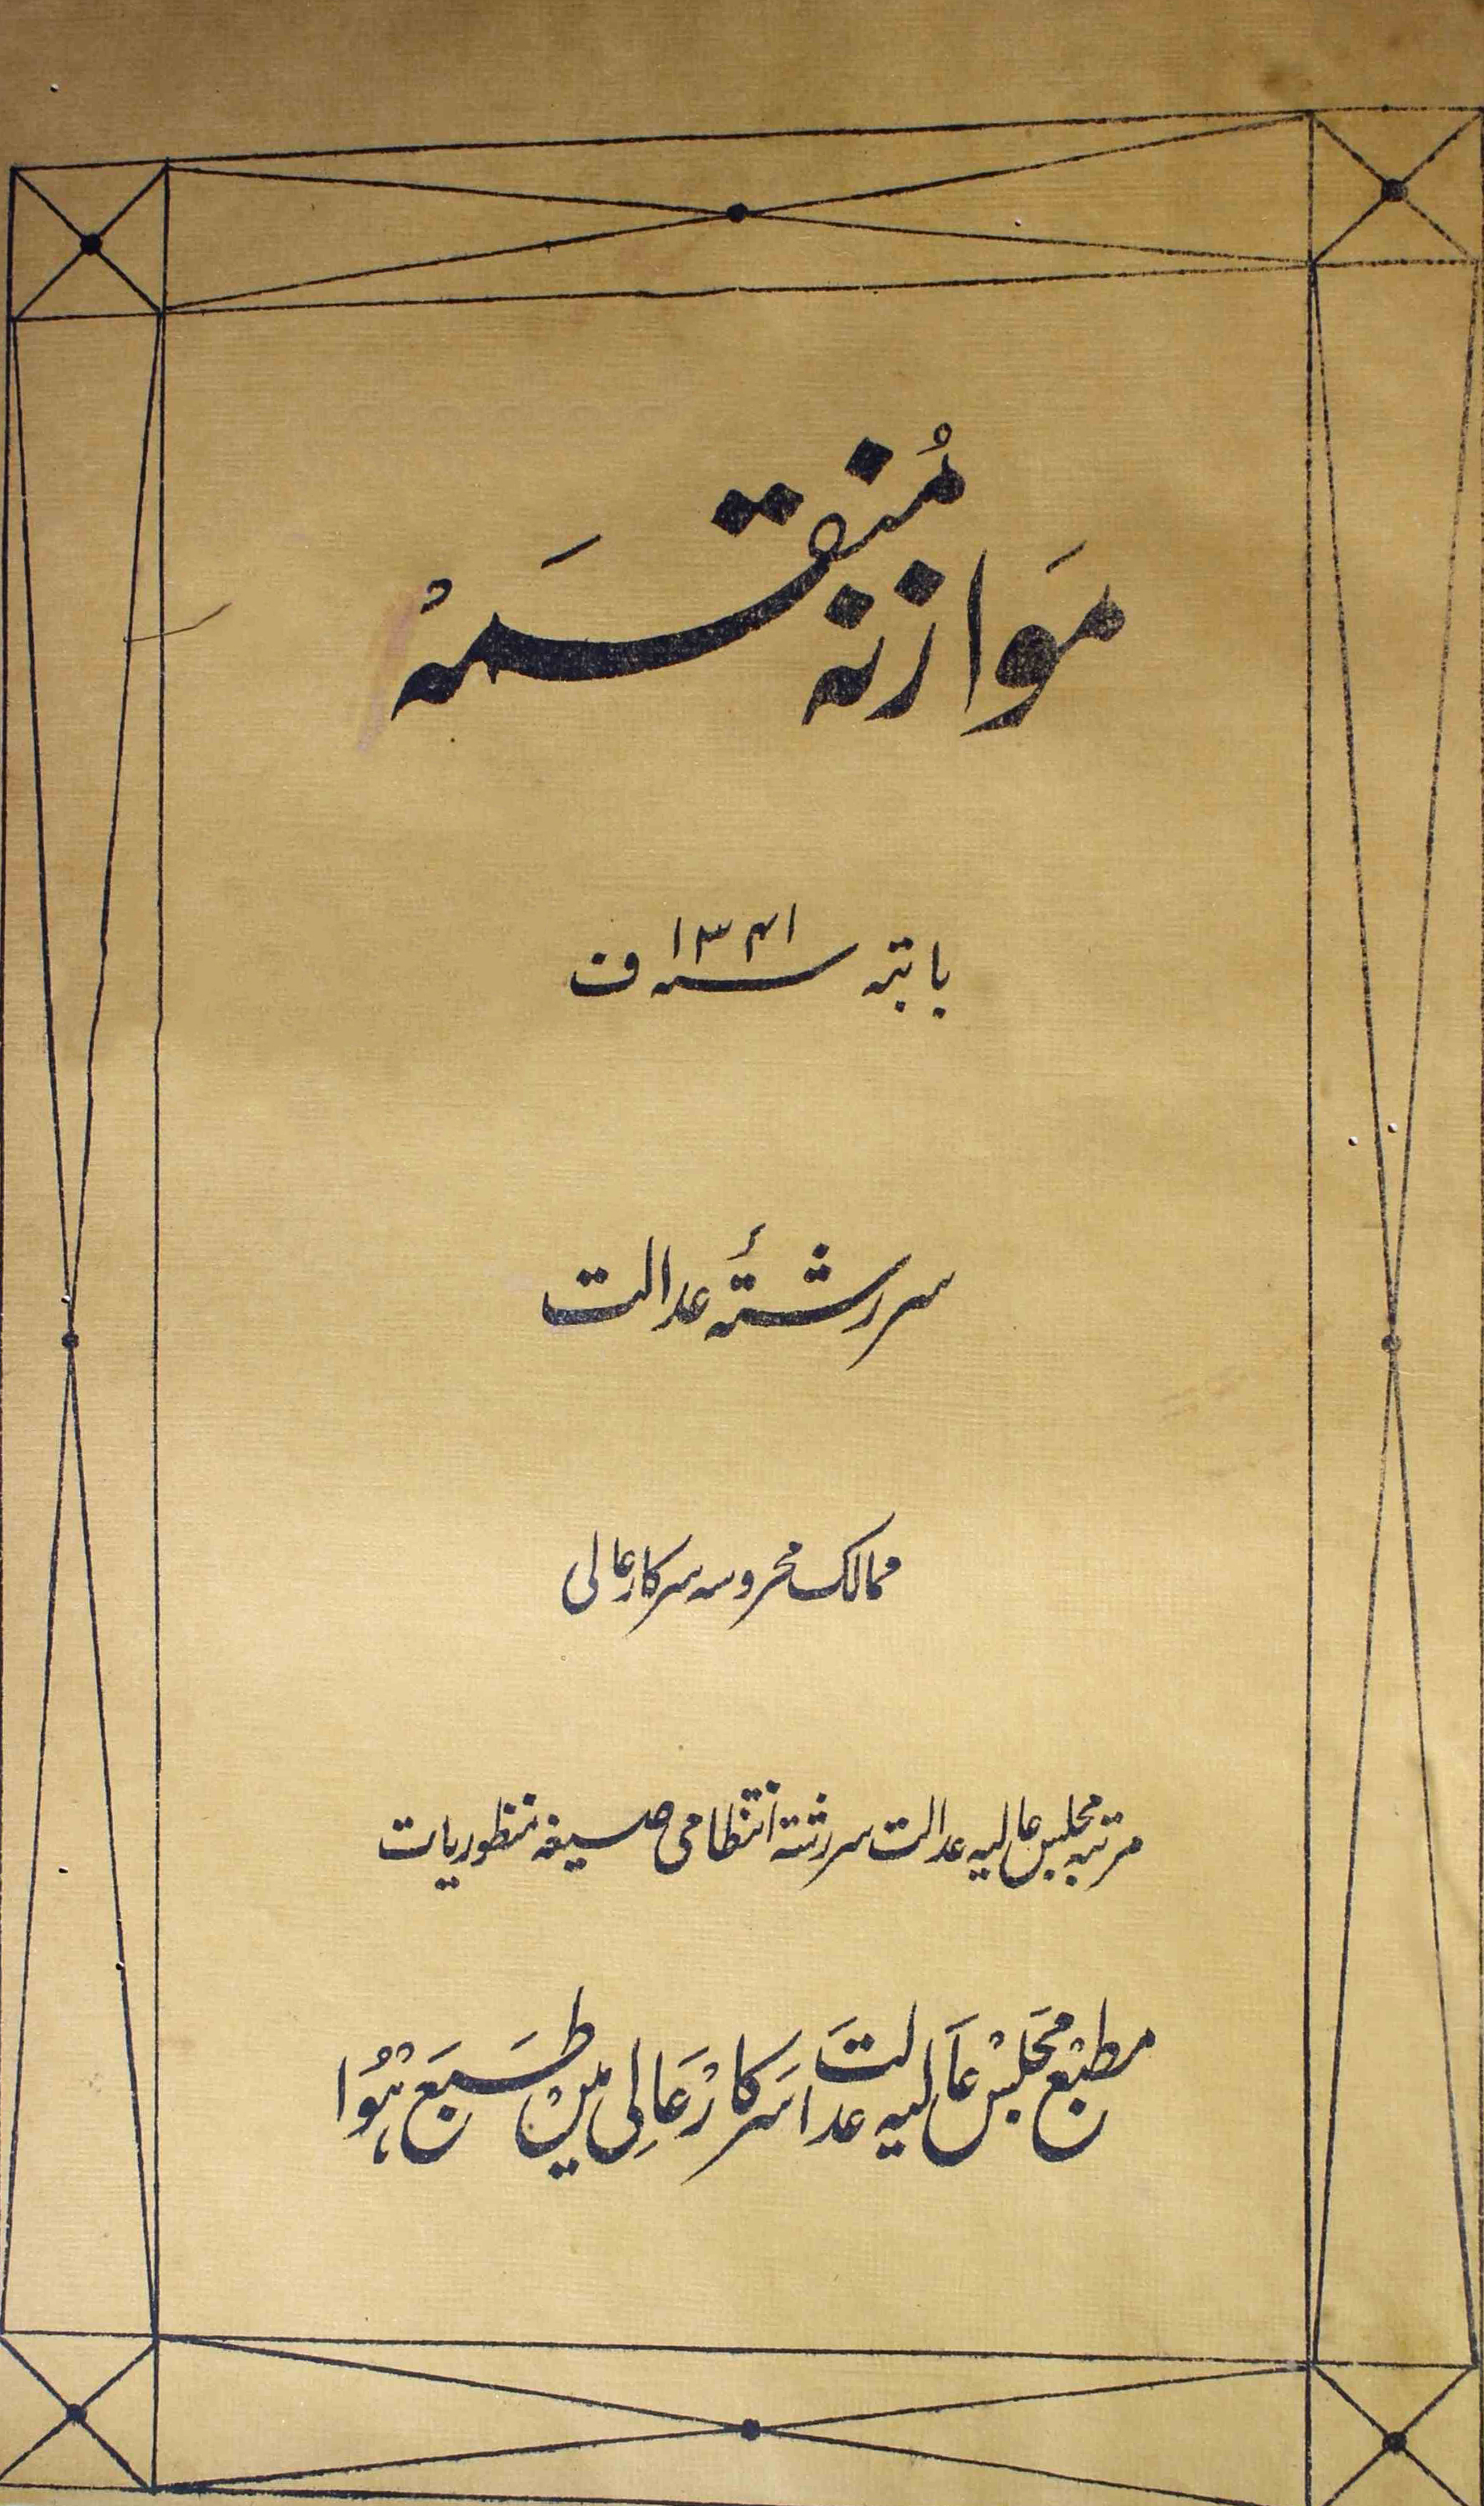 مَوازنہ مُنقسَمہْ
بابتہ ۱۳۴۱؁ ف
سررشتۂ عدالت
ممالک محروسہ سرکارعالی
مرتبہ مجلس عالیہ عدالت سررشتہ انتظامی صیغہ منظوریات
مطبع مجلس عالیہ عدالت سرکار عالی میں طبع ہوا